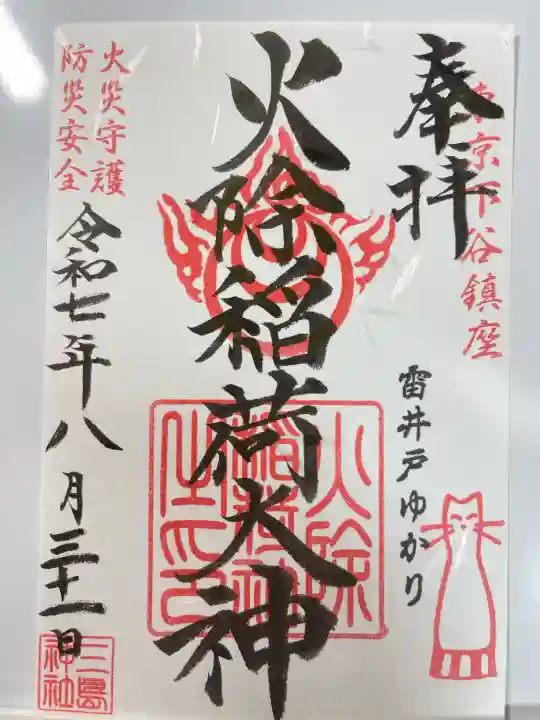 奉拝
東京下谷鎮座
雷井戸ゆかり
火除稲荷大神
火除稲荷神社之印
火災守護
防災安全
令和七年八月三十一日
三島神社